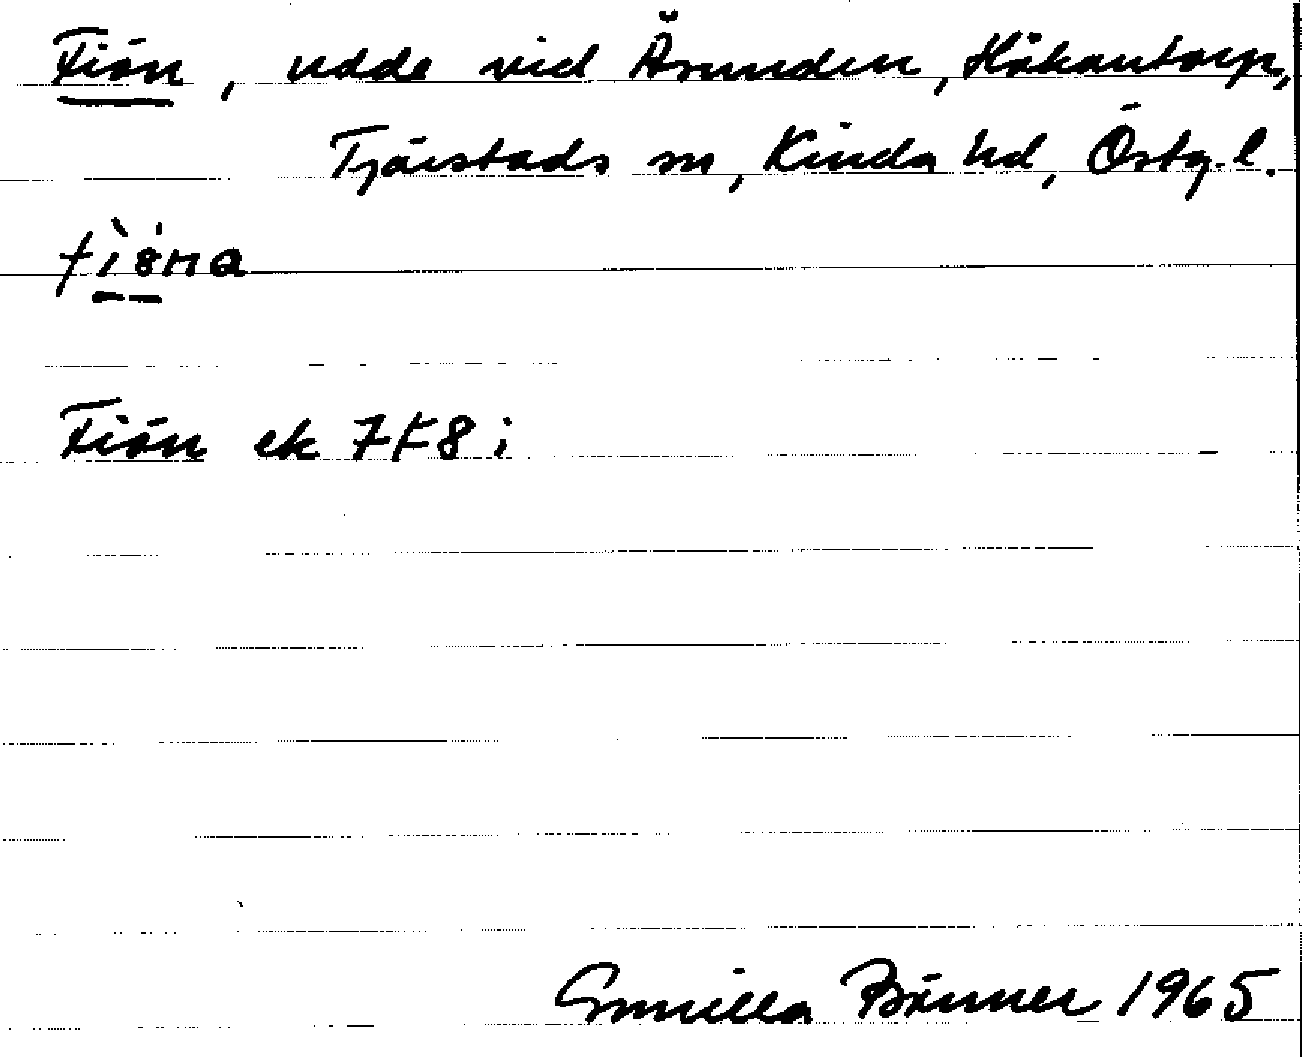 Fiön, udde vid Åsunden, Håkantorp,
Tjärstads sn, Kinda hd, Östg. l.
Fiön ek 7F8i
Gunilla Bänner 1965